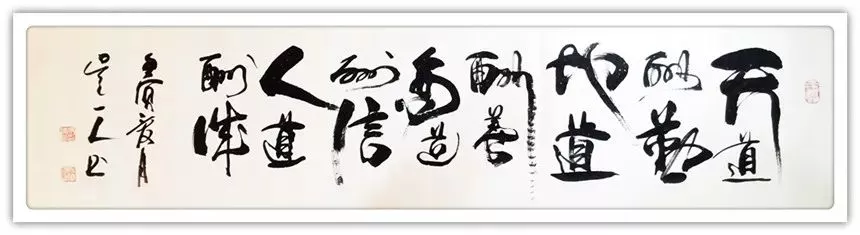 天道
酬勤
地道
酬善
商道
酬信
人道
酬诚
寅夏月
一人书